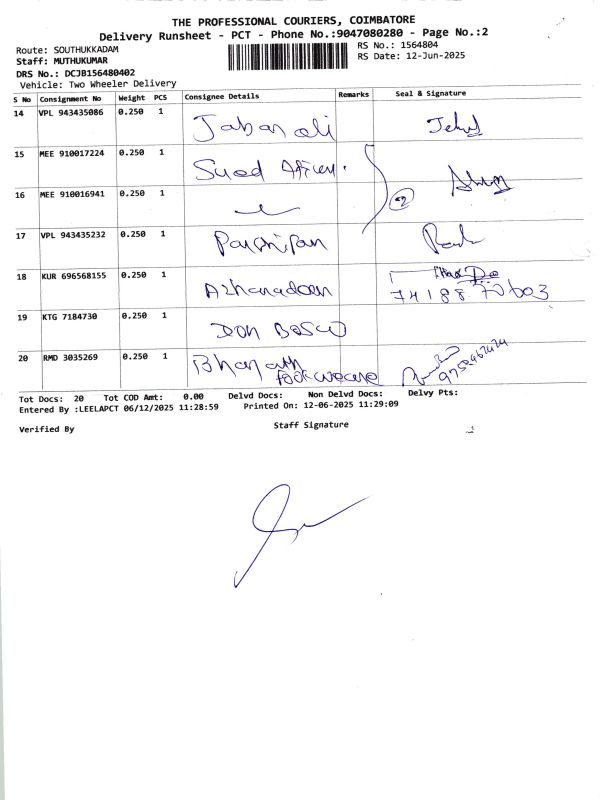 THE PROFESSIONAL COURIERS, COIMBATORE
Delivery Runsheet - PCT - Phone No.:9047080280 - Page No.:2
Route: SOUTHUKKADAM
RS No.: 1564804
Staff: MUTHUKUMAR
RS Date: 12-Jun-2025
DRS No.: DCJB156480402
Vehicle: Two Wheeler Delivery
S No Consignment No Weight PCS Consignee Details Remarks Seal & Signature
14 VPL 943435086 0.250 1 Jabar ali
15 MEE 910017224 0.250 1 Syed
16 MEE 910016941 0.250 1
17 VPL 943435232 0.250 1
18 KUR 696568155 0.250 1 74188 70603
19 KTG 7184730 0.250 1 DON BOSCO
20 RMD 3035269 0.250 1 Bharath
Footweare
Tot Docs: 20 Tot COD Amt: 0.00 Delvd Docs: Non Delvd Docs: Delvy Pts:
Entered By :LEELAPCT 06/12/2025 11:28:59 Printed On: 12-06-2025 11:29:09
Verified By Staff Signature